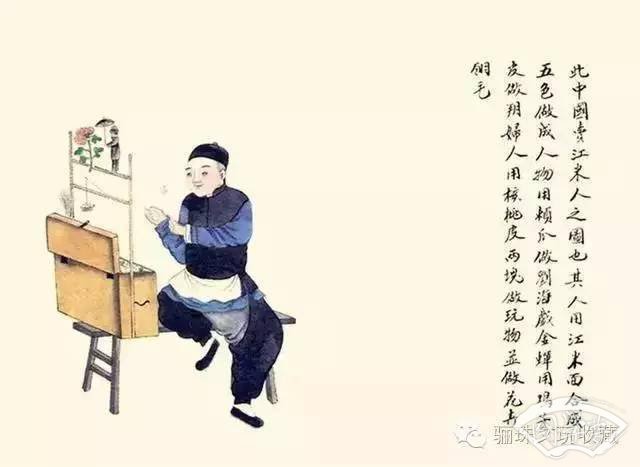 此中國賣江米人之圖也其人用江米面合成
五色做成人物用做劉海戲金蟬用
皮做婦人用核桃皮兩塊做玩物並做花卉
翎毛
骊珠玩收藏